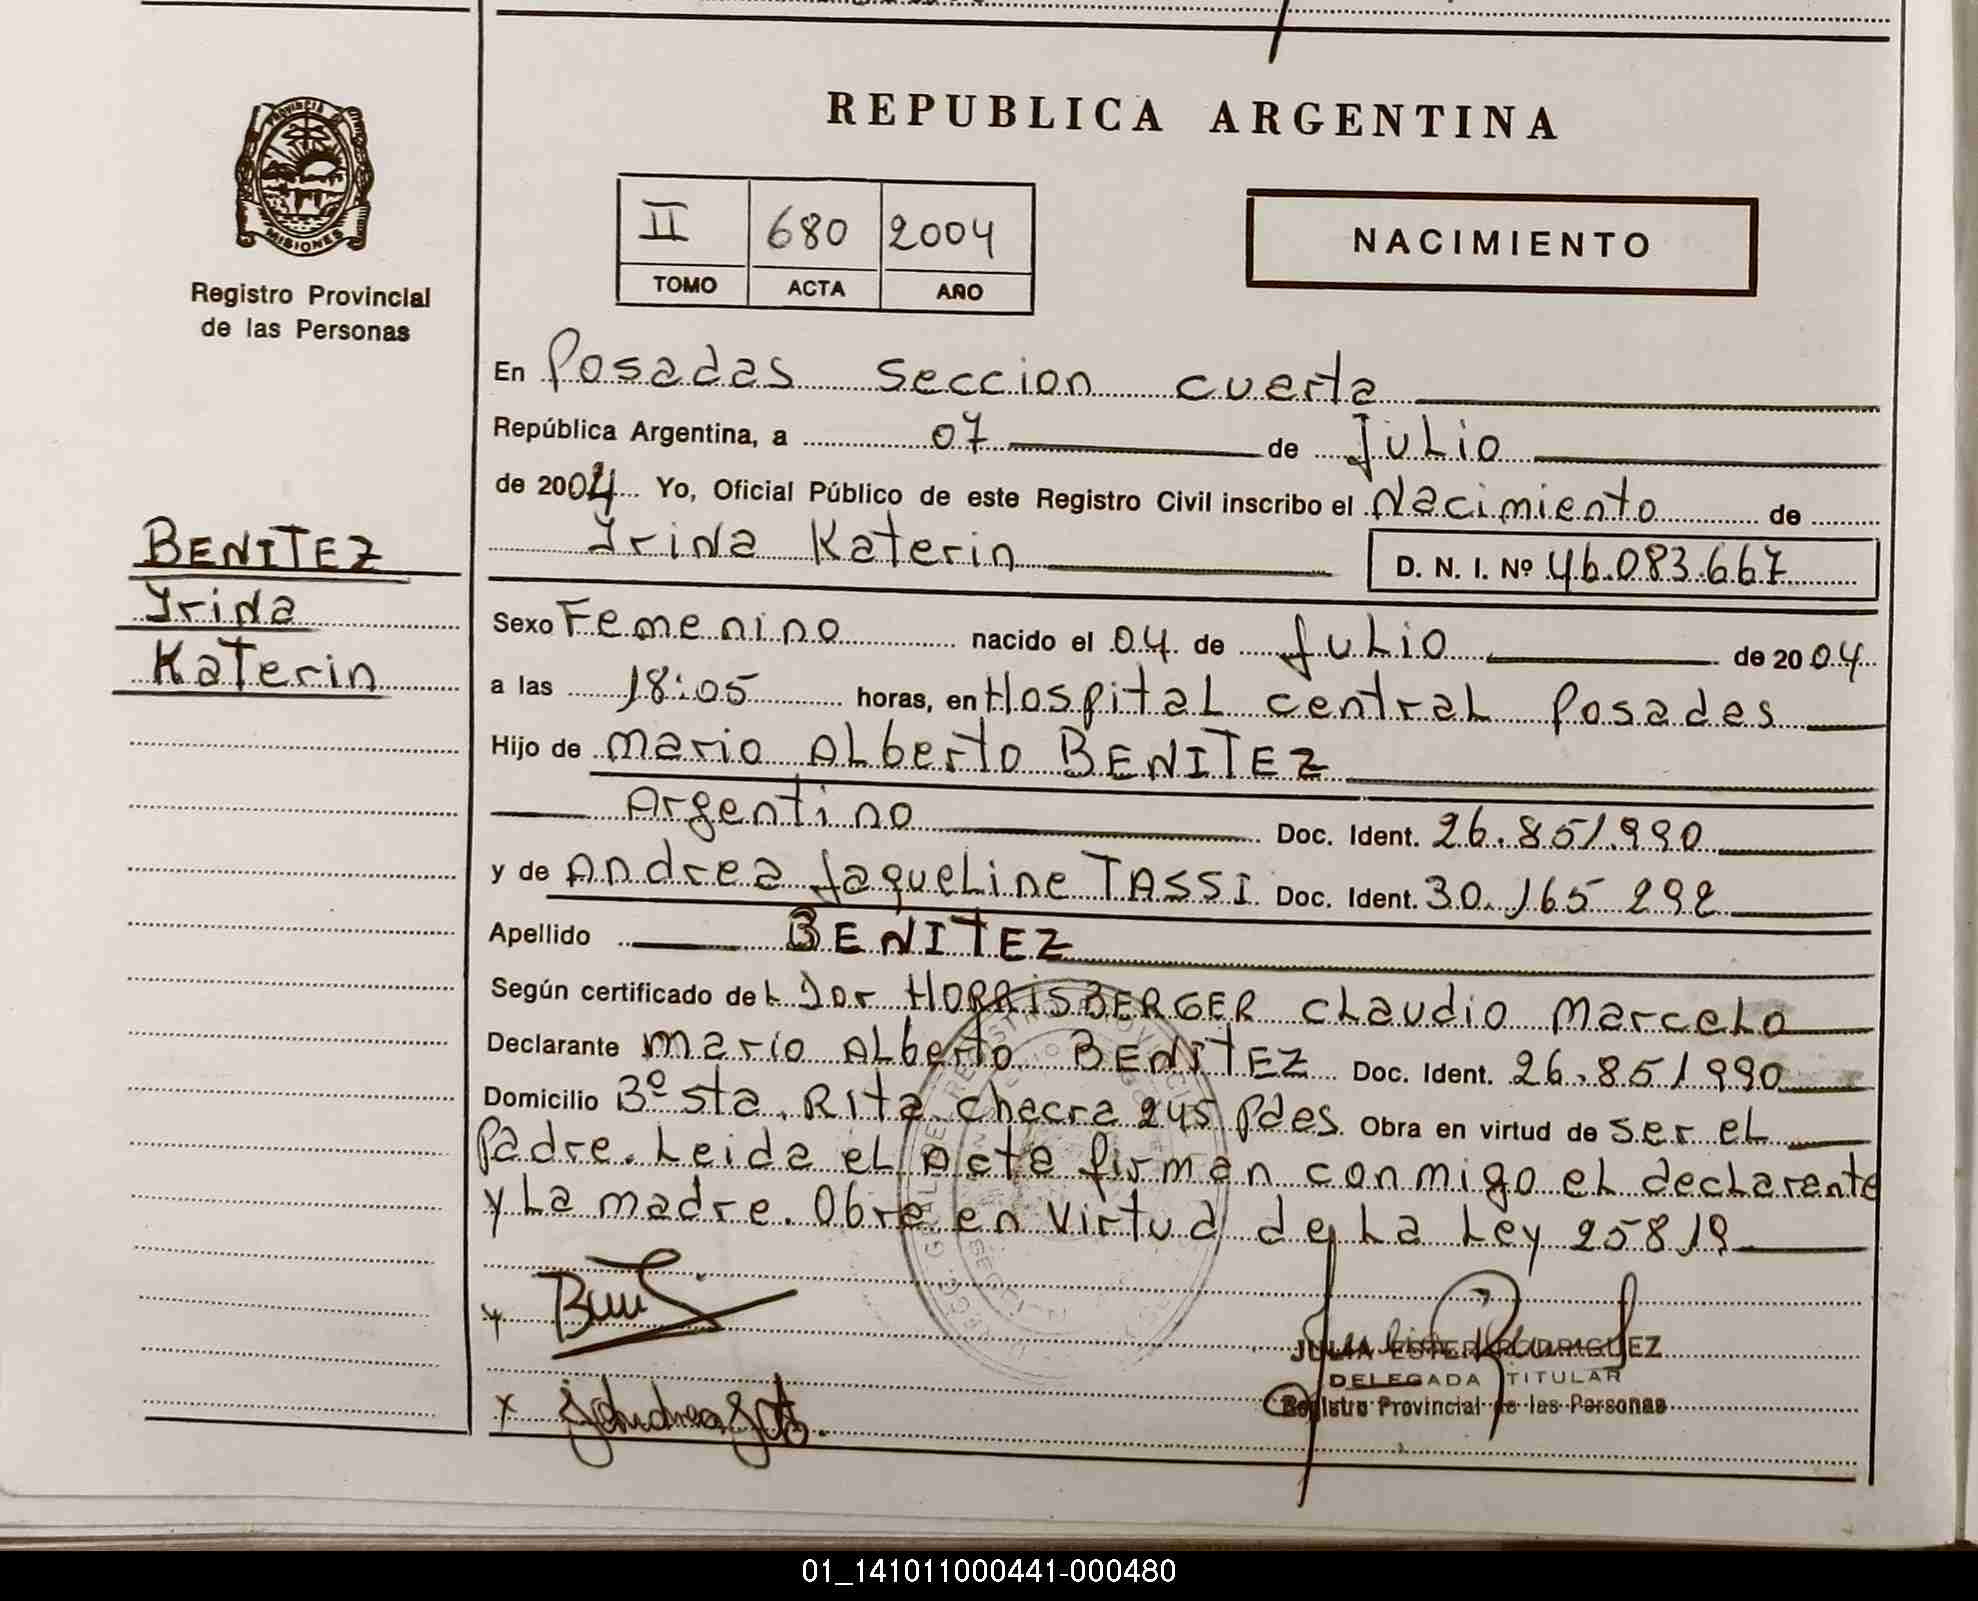 REPUBLICA ARGENTINA
PROVINCIA DE
MISIONES
Registro Provincial
de las Personas
II 680 2004
TOMO ACTA AÑO
NACIMIENTO
En Posadas seccion cuarta
República Argentina, a 07 de Julio
de 2004 Yo, Oficial Público de este Registro Civil inscribo el Nacimiento de
Irina Katerin D. N. I. Nº 46.083.667
BENITEZ
Irina
Katerin
Sexo Femenino nacido el 04 de Julio de 2004
a las 18:05 horas, en Hospital central Posadas
Hijo de Mario Alberto BENITEZ
Argentino Doc. Ident. 26.851.990
y de Andrea Jaqueline TASSI Doc. Ident. 30.165 292
Apellido BENITEZ
Según certificado del Dor HORRISBERGER Claudio Marcelo
Declarante Mario Alberto BENITEZ Doc. Ident. 26.851990
Domicilio Bº sta. Rita chacra 245 Pdas Obra en virtud de ser el
Padre. Leida el Acta firman conmigo el declarante
y La madre. Obre en Virtud de La Ley 25819
JULIA ESTER RODRIGUEZ
DELEGADA TITULAR
Registro Provincial de las Personas
01_141011000441-000480